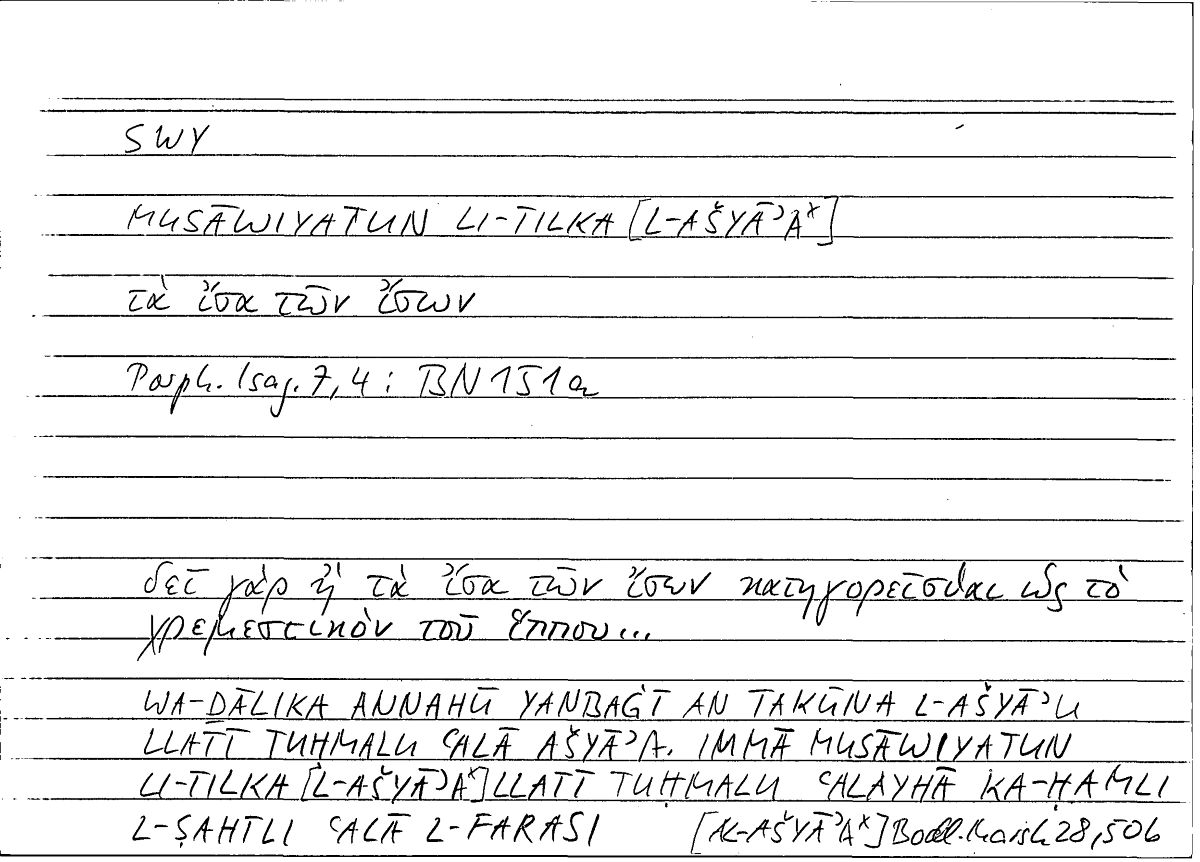 SWY
MUSĀWIYATUN LI-TILKA [L-AŠYĀʾAˣ]
τὰ ἴσα τῶν ἴσων
Porph. Isag. 7, 4 : BN 151a
δεῖ γὰρ ἢ τὰ ἴσα τῶν ἴσων κατηγορεῖσθαι ὡς τὸ
χρεμεστικὸν τοῦ ἵππου...
WA-ḎĀLIKA ANNAHŪ YANBAĠĪ AN TAKŪNA L-AŠYĀʾU
LLATĪ TUḤMALU ʿALĀ AŠYĀʾA. IMMĀ MUSĀWIYATUN
LI-TILKA [L-AŠYĀʾAˣ] LLATĪ TUḤMALU ʿALAYHĀ KA-ḤAMLI
L-ṢAHĪLI ʿALĀ L-FARASI [AL-AŠYĀʾAˣ] Bodl. Marsh 28, 50b